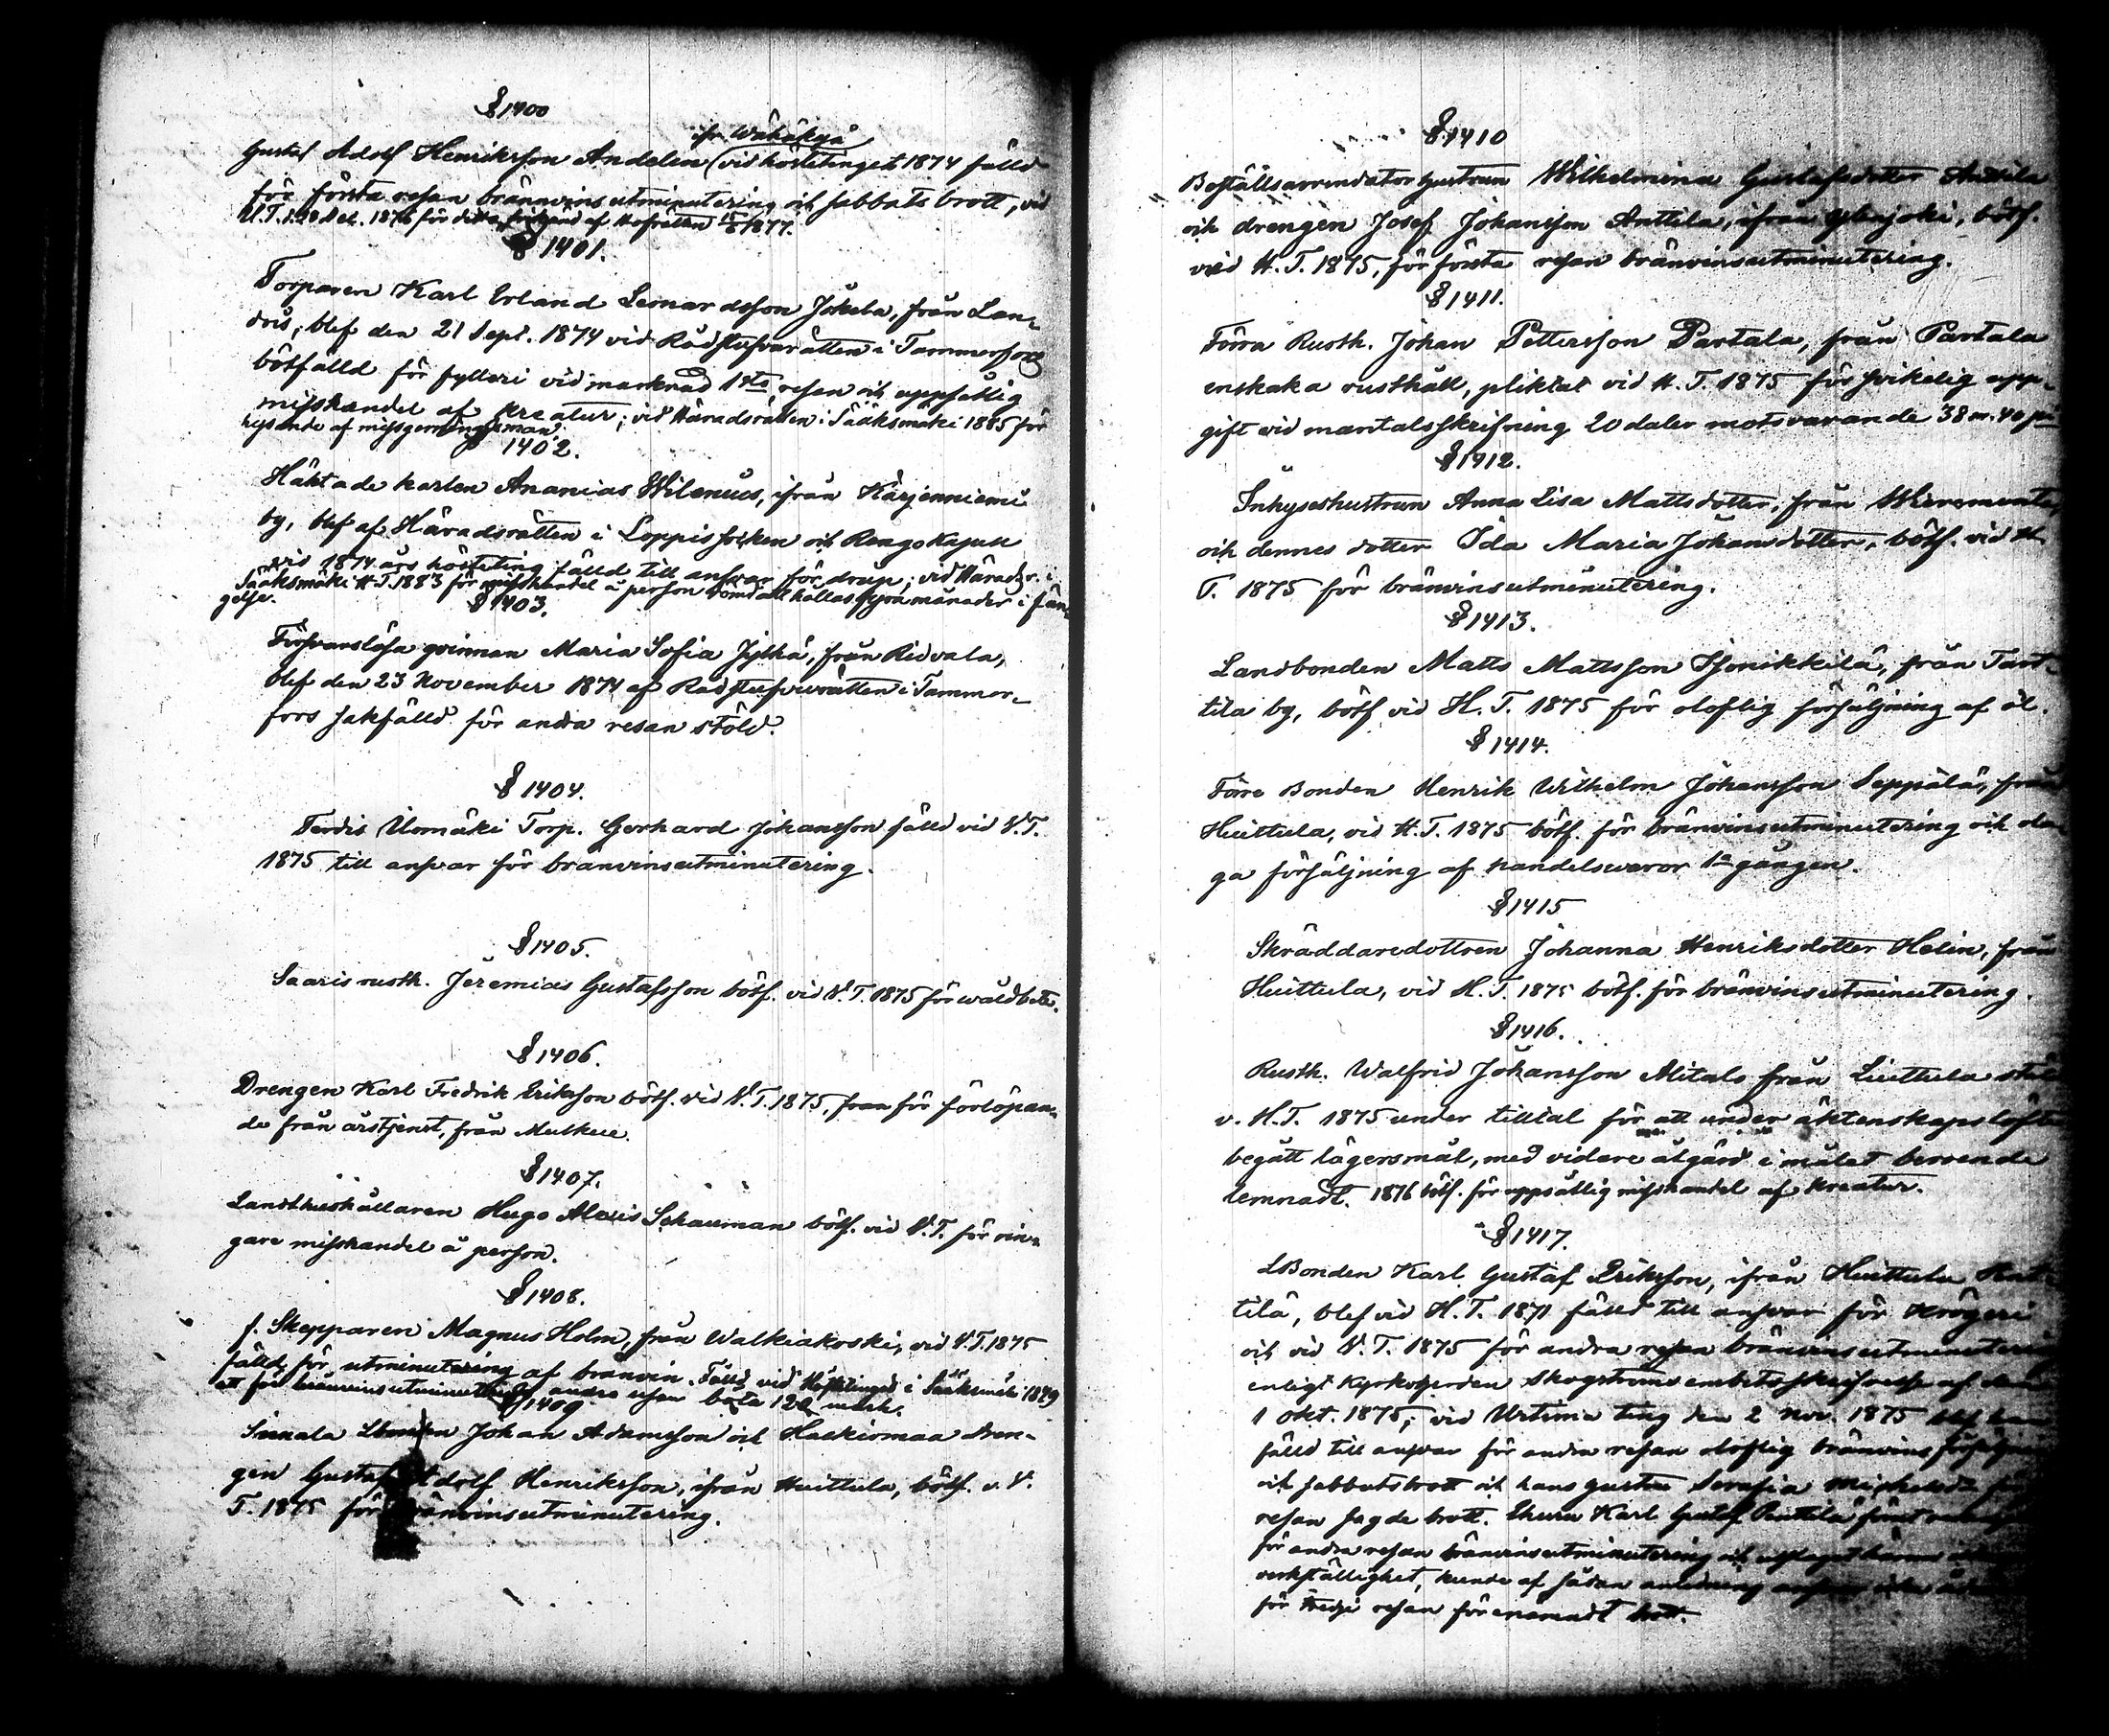 § 1400
ifr. Wähäkyä
Gustaf Adolf Henriksson Andelin (vid hösttinget 1874 fälld
för första resan bränvinsutminutering och sabbatsbrott, vid
U.T. 1876 för detta af Hofrätten 1877.
§ 1401.
Torparen Karl Erland Leonardsson Jokela, från Lan-
dis, blef den 21 Sept. 1874 vid Rådstufvurätten i Tammerfors
bötfälld för fylleri vid marknad 1sta resan och uppsåtlig
misshandel af kreatur; vid Häradsrätten i Sääksmäki 1885 för
hysande af missgerningsman.
1402.
Häktade karlen Ananias Wilenius, ifrån Kärjenniemi
by, blef af Häradsrätten i Loppis socken och Rengo kapell
vid 1874 års hösteting fälld till ansvar för dråp; vid Häradsr. i
Sääksmäki H.T. 1883 för misshandel å person dömd att hållas fyra månader i fän-
gelse.
§ 1403.
Försvarslösa qvinnan Maria Sofia Jythä, från Ridvala,
blef den 23 November 1874 af Rådstufvurätten i Tammer-
fors sakfälld för andra resan stöld.
§ 1404.
Ferdis Uomäki Torp. Gerhard Johansson fälld vid V.T.
1875 till ansvar för bränvinsutminutering.
§ 1405.
Saaris rusth. Jeremias Gustafsson bötf. vid V.T. 1875 för wåldbete.
§ 1406.
Drengen Karl Fredrik Eriksson bötf. vid V.T. 1875, fran för förlöpan-
de från årstjenst, från Metkue.
§ 1407.
Landthushållaren Hugo Alexis Schauman bötf. vid V.T. för rin-
gare misshandel å person.
§ 1408.
f. Skepparen Magnus Holm, från Walkiakoski, vid V.T. 1875
fälld för utminutering af bränvin. Fälld vid Hösttinget i Sääksmäki 1879
att för bränvinsutminutering andra resan böta 120 mark.
§ 1409
Simala Lbonden Johan Adamsson och Haukiomaa dren-
gen Gustaf Adolf Henriksson, ifrån Huittula, bötf. v. V.
T. 1875 för bränvinsutminutering.
§ 1410
Boställsarrendatorhustrun Wilhelmina Gustafsdotter Anttila
och drengen Josef Johansson Anttila, ifrån bötf.
vid H.T. 1875, för första resan bränvinsutminutering.
§ 1411.
Förra Rusth. Johan Pettersson Partala, från Partala
enskaka rusthåll, pliktat vid H.T. 1875 för svikelig upp-
gift vid mantalsskrifning 20 daler motsvarande 38 m. 40 pi
§ 1412.
Inhyseshustrun Anna Lisa Mattsdotter, från
och dennes dotter Ida Maria Johansdotter, bötf. vid H.
T. 1875 för bränvinsutminutering.
§ 1413.
Landbonden Matts Mattsson Honikkilä, från Tart-
tila by, bötf vid H.T. 1875 för oloflig försäljning af öl.
§ 1414.
Förre Bonden Henrik Wilhelm Johansson Seppälä, från
Huittula, vid H.T. 1875 bötf. för bränvinsutminutering och ola-
ga försäljning af handelsvaror 1a gången.
§ 1415
Skräddaredottren Johanna Henriksdotter Helin, från
Huittula, vid H.T. 1875 bötf. för bränvinsutminutering.
§ 1416.
Rusth. Walfrid Johansson Mitals från Liuttula
v. H.T. 1875 under tilltal för att under äktenskapslöfte
begått lägersmål, med vidare åtgärd i målet beroende
lemnadt. 1876 bötf. för uppsåtlig misshandel af kreatur.
§ 1417.
LBonden Karl Gustaf Eriksson, ifrån Huittula
tilä, blef vid H.T. 1871 fälld till ansvar för krögeri
och vid V.T. 1875 för andra resan bränvinsutminutering
enligt Kyrkoherden Skogströms embetsskrifvelse af den
1 Okt. 1875; vid Urtima ting den 2 Nov. 1875 blef han
fälld till ansvar för andra resan oloflig bränvins
och sabbatsbrott och hans hustru Serafia
resan sagde brott. Karl Gustaf
för andra resan bränvinsutminutering och
verkställighet, kunde af sådan anledning
för tredje resan förenämndt brott.